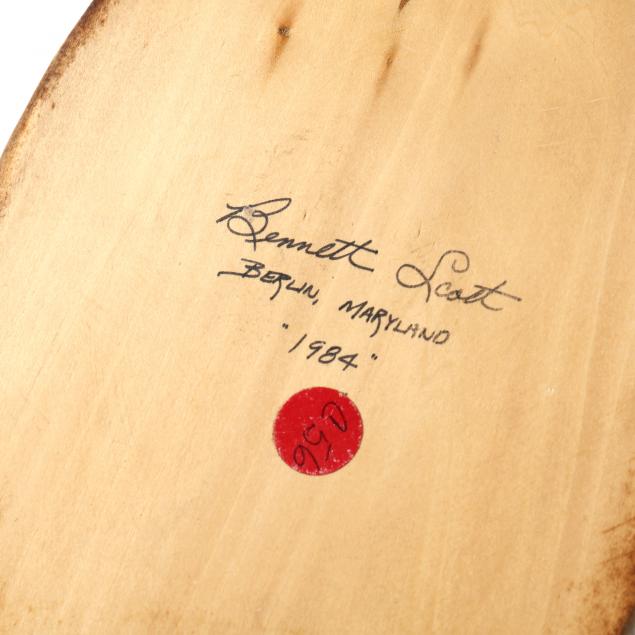 Bennett Scott
BERLIN, MARYLAND
"1984"